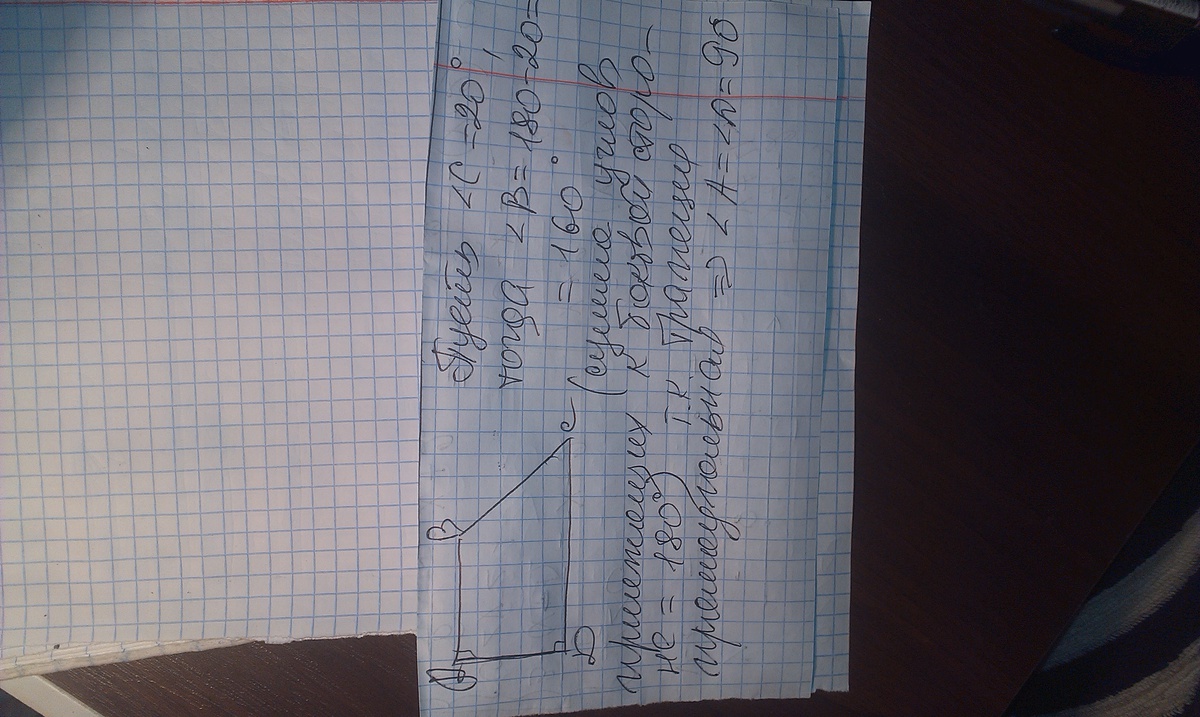 Пусть <C =20°,
тогда <B = 180-20=
= 160°
A B
D C
(сумма углов
прилежащих к боковой сторо-
не = 180°) т.к трапеция
прямоугольная => <A = <D = 90°